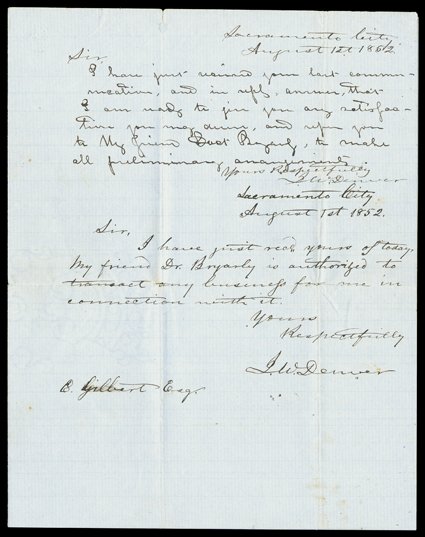 Sacramento City
August 1st 1852
Sir
I have just received your last commu-
nication, and in reply, answer, that
I am ready to give you any satisfac-
tion you may desire, and refer you
to My friend Doct Bryarly, to make
all preliminary arrangements
Yours Respectfully
J. W. Denver
Sacramento City
August 1st 1852.
Sir,
I have just recd. yours of today.
My friend Dr. Bryarly is authorized to
transact any business for me in
connection with it.
Yours
Respectfully
J. W. Denver
Gilbert Esq.